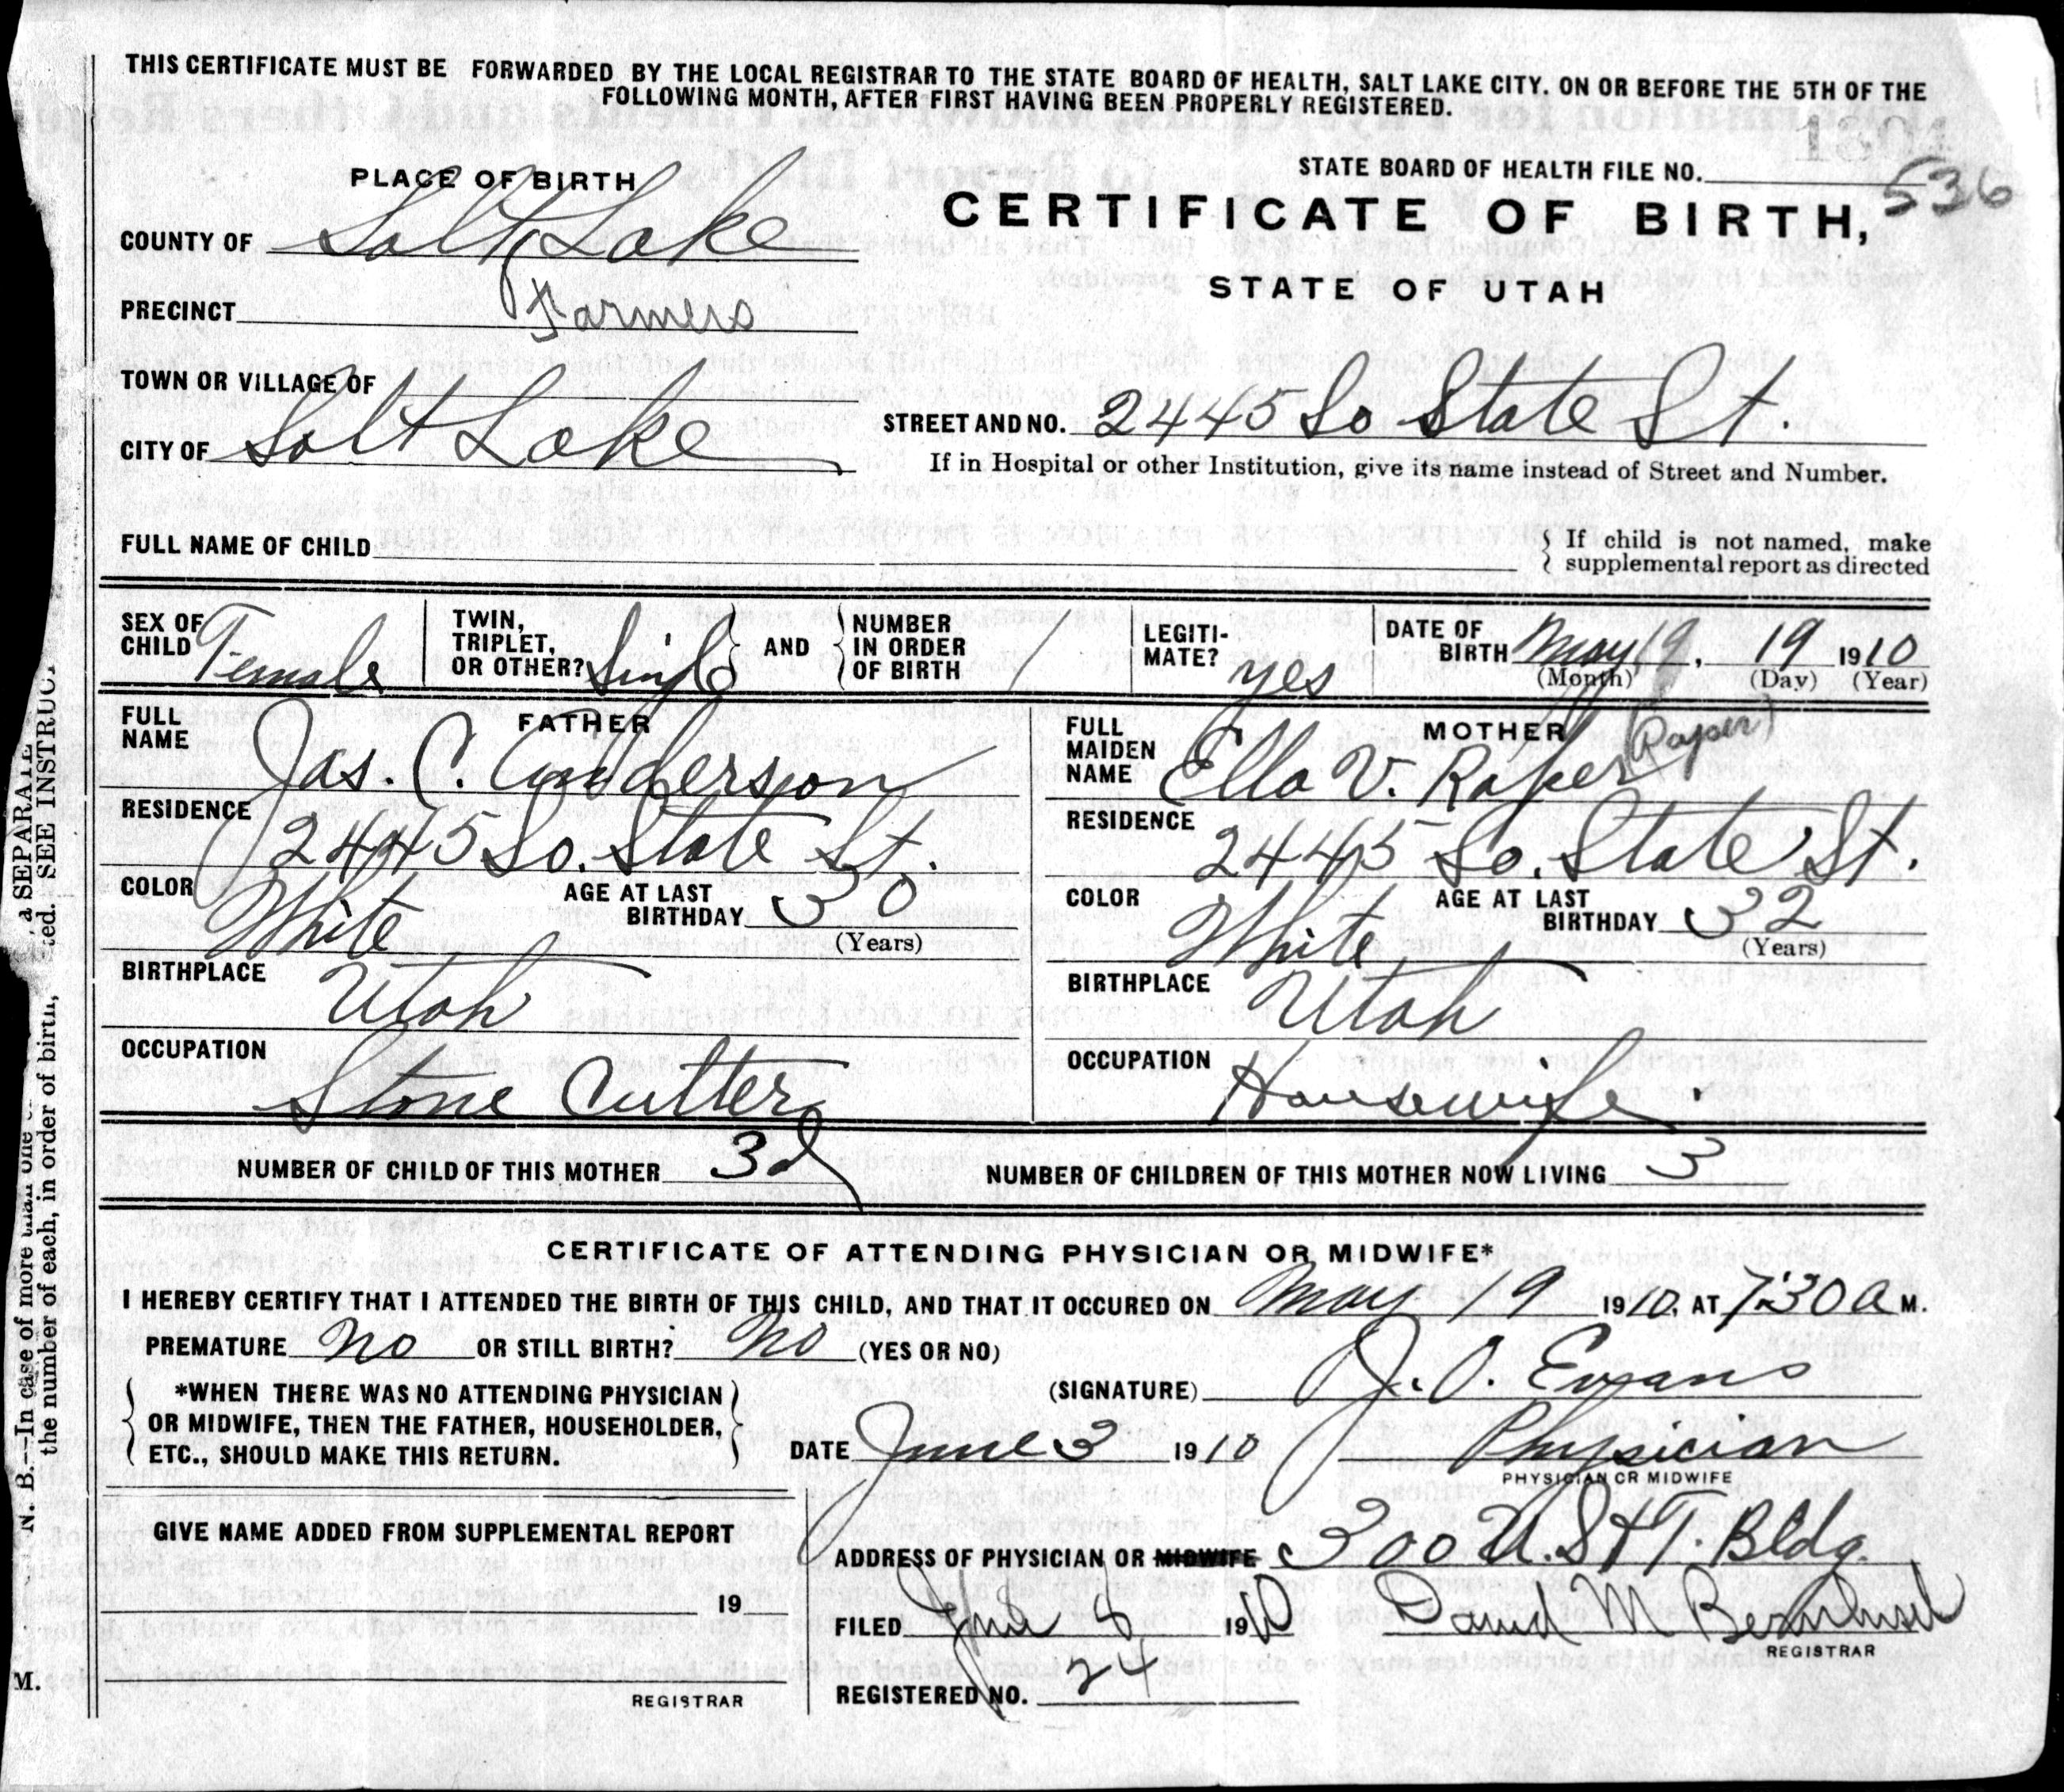 THIS CERTIFICATE MUST BE FORWARDED BY THE LOCAL REGISTRAR TO THE STATE BOARD OF HEALTH, SALT LAKE CITY. ON OR BEFORE THE 5TH OF THE
FOLLOWING MONTH, AFTER FIRST HAVING BEEN PROPERLY REGISTERED.
1304
PLACE OF BIRTH
STATE BOARD OF HEALTH FILE NO. 536
COUNTY OF Salt Lake
CERTIFICATE OF BIRTH,
STATE OF UTAH
PRECINCT Farmers
TOWN OR VILLAGE OF
CITY OF Salt Lake
STREET AND NO. 2445 So State St.
If in Hospital or other Institution, give its name instead of Street and Number.
FULL NAME OF CHILD
If child is not named, make
supplemental report as directed
SEX OF CHILD Female
TWIN, TRIPLET, OR OTHER? Single
AND
NUMBER IN ORDER OF BIRTH /
LEGITI-MATE? yes
DATE OF BIRTH May 19, 19 1910
(Month) (Day) (Year)
FATHER
FULL NAME Jas. C. Anderson
RESIDENCE 2445 So. State St.
COLOR White
AGE AT LAST BIRTHDAY 30
(Years)
BIRTHPLACE Utah
OCCUPATION Stone Cutter
MOTHER
FULL MAIDEN NAME Ella V. Raper (Raper)
RESIDENCE 2445 So. State St.
COLOR White
AGE AT LAST BIRTHDAY 32
(Years)
BIRTHPLACE Utah
OCCUPATION Housewife
NUMBER OF CHILD OF THIS MOTHER 3d
NUMBER OF CHILDREN OF THIS MOTHER NOW LIVING 3
CERTIFICATE OF ATTENDING PHYSICIAN OR MIDWIFE*
I HEREBY CERTIFY THAT I ATTENDED THE BIRTH OF THIS CHILD, AND THAT IT OCCURED ON May 19 1910, AT 7:30 a M.
PREMATURE no OR STILL BIRTH? no (YES OR NO)
*WHEN THERE WAS NO ATTENDING PHYSICIAN
OR MIDWIFE, THEN THE FATHER, HOUSEHOLDER,
ETC., SHOULD MAKE THIS RETURN.
(SIGNATURE) J. O. Evans
DATE June 3 1910
Physician
PHYSICIAN OR MIDWIFE
GIVE NAME ADDED FROM SUPPLEMENTAL REPORT
19
REGISTRAR
ADDRESS OF PHYSICIAN OR MIDWIFE 300 U.S & T. Bldg.
FILED June 8 1910
David M Bernhisel
REGISTRAR
REGISTERED NO. 24
N. B.--In case of more than one a SEPARATE
the number of each, in order of birth, ted. SEE INSTRUC
M.